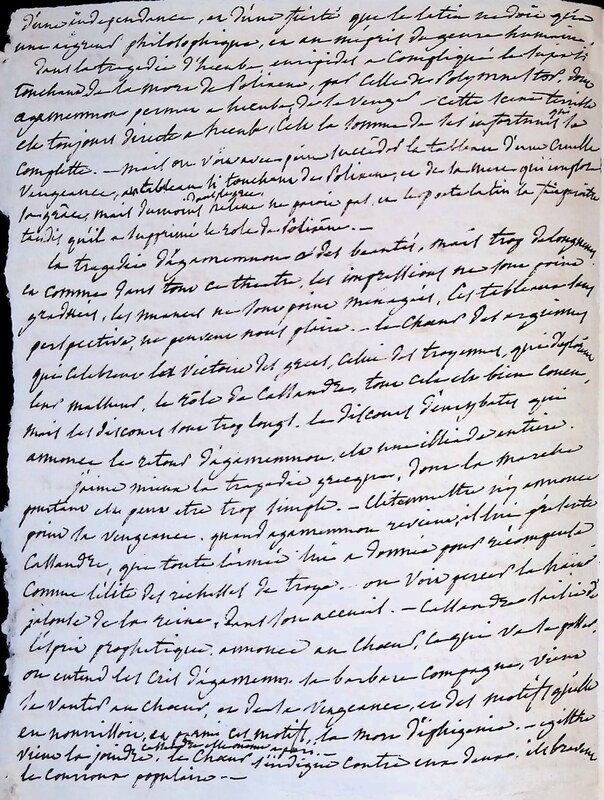 d'une indépendance, et d'une fierté que le latin ne doit qu'à
une aigreur philosophique, et au mépris du genre humain.
Dans la tragédie d'hécube euripides a compliqué le sujet si
touchant de la mort de Polixene, par celle de Polymnestor, dont
agamemnon permet a hecube de se venger - cette scene terrible
est toujours directe a hecube, c'est la somme de ses infortunes
complette. - mais on voit avec peine succéder le tableau d'une cruelle
vengeance, au tableau si touchant de Polixene, et de sa mere qui implore
sa grâce, mais du moins dans le grec, ne paroit pas, et le poete latin
tandis qu'il a supprimé le role de Polixène. -
la tragédie d'agamemnon a des beautés, mais trop de longueurs
et comme dans tout ce theatre, les impressions ne sont point
graduées, les nuances ne sont point ménagées, ces tableaux sans
perspective, ne peuvent nous plaire. - le choeur des argiennes
qui célèbrent la victoire des grecs, celui des troyennes, qui déplorent
leur malheur, le rôle de Cassandre, tout cela est bien conçu,
mais les discours sont trop longs. le discours d'eurybates qui
annonce le retour d'agamemnon, est une illiade entiere.
j'aime mieux la tragédie grecque, dont la marche
pourtant est peut etre trop simple. - Clitemnestre n'y annonce
point sa vengeance. quand agamemnon revient, il lui présente
Cassandre, que toute l'armée lui a donnée pour récompense
comme l'élite des richesses de troye. on voit percer la haine
jalouse de la reine, dans son accueil. - Cassandre saisie de
l'esprit prophetique, annonce au choeur, ce qui va se passer.
on entend les cris d'agamemnon. sa barbare compagne, vient
se vanter au choeur, et de sa vengeance, et des motifs qu'elle
en nourrissoit, et parmi ces motifs, la mort d'iphigenie. - egisthe
vient la joindre, le choeur s'indigne contre eux deux, ils bravent
le courroux populaire. -